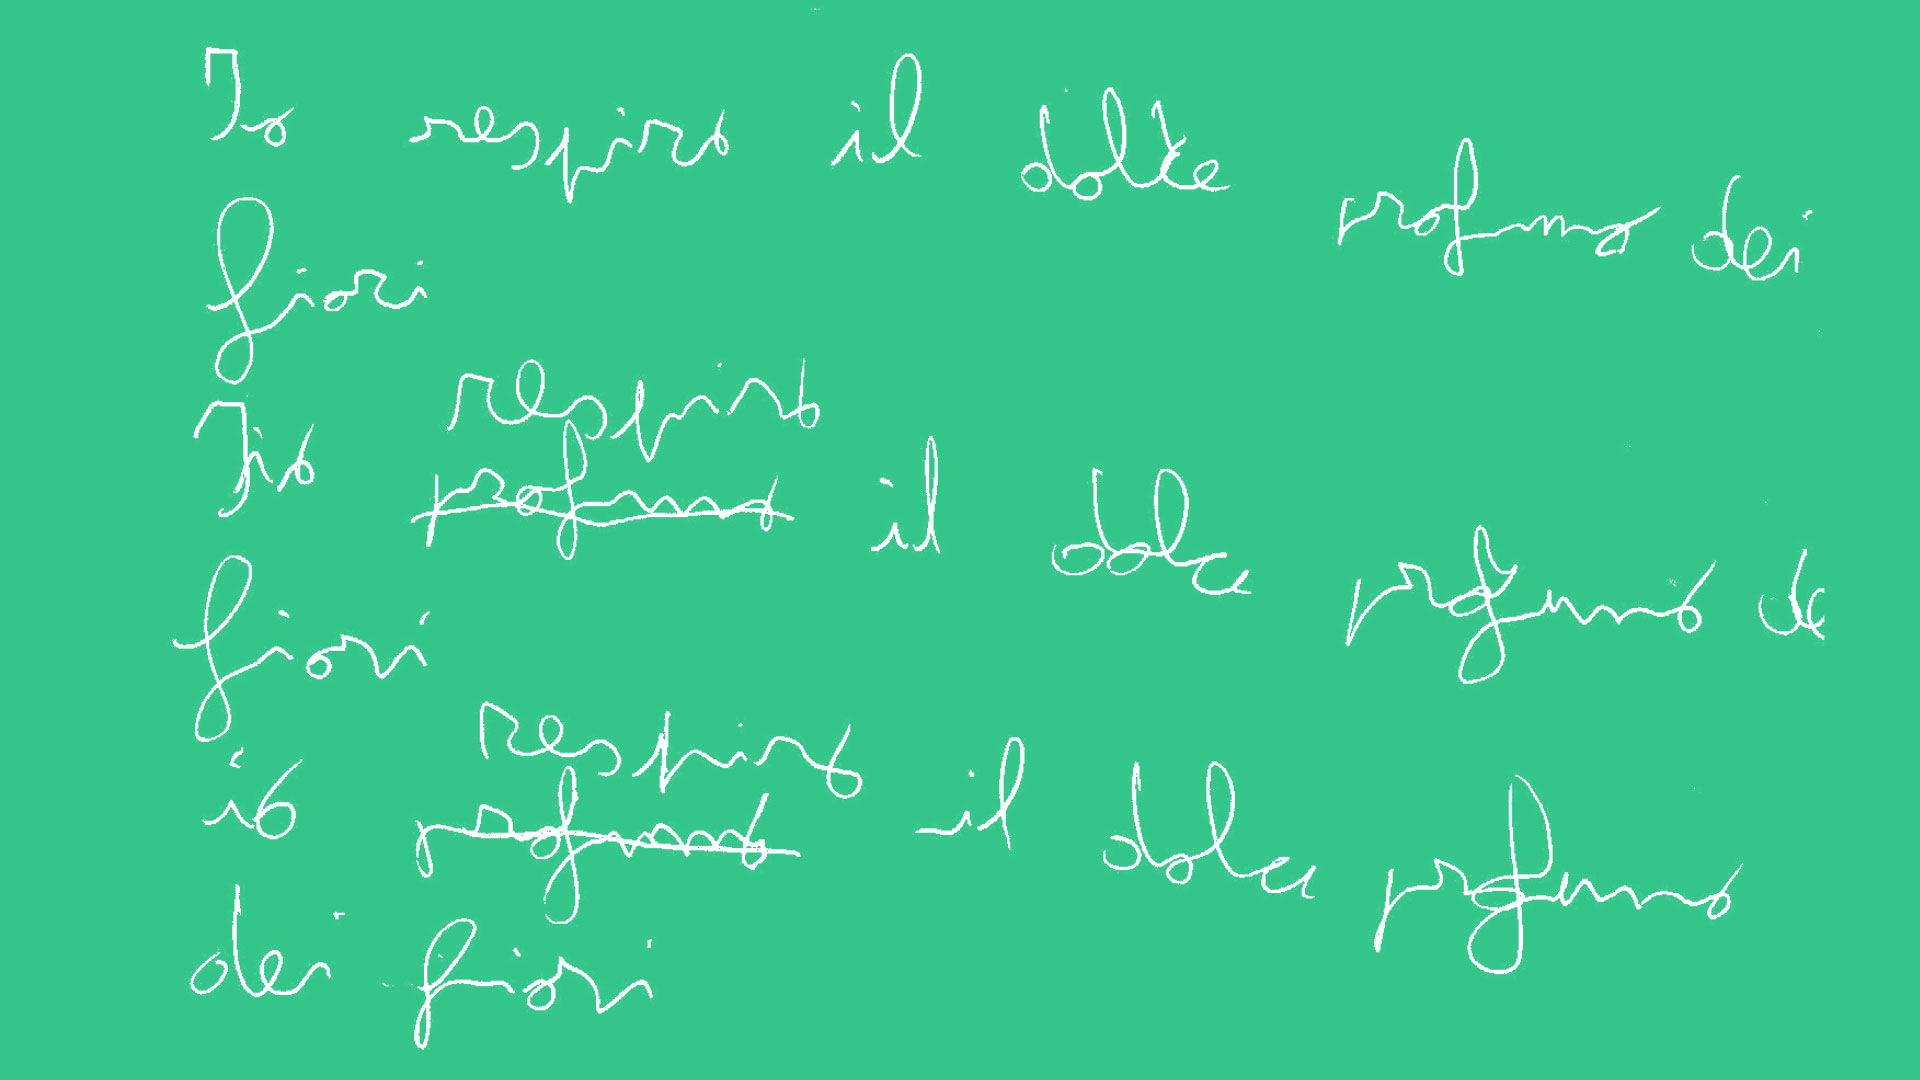 Io respiro il dolce profumo dei
fiori
Io respiro profumo il dolce profumo de
fiori
io respiro profumo il dolce profumo
dei fiori